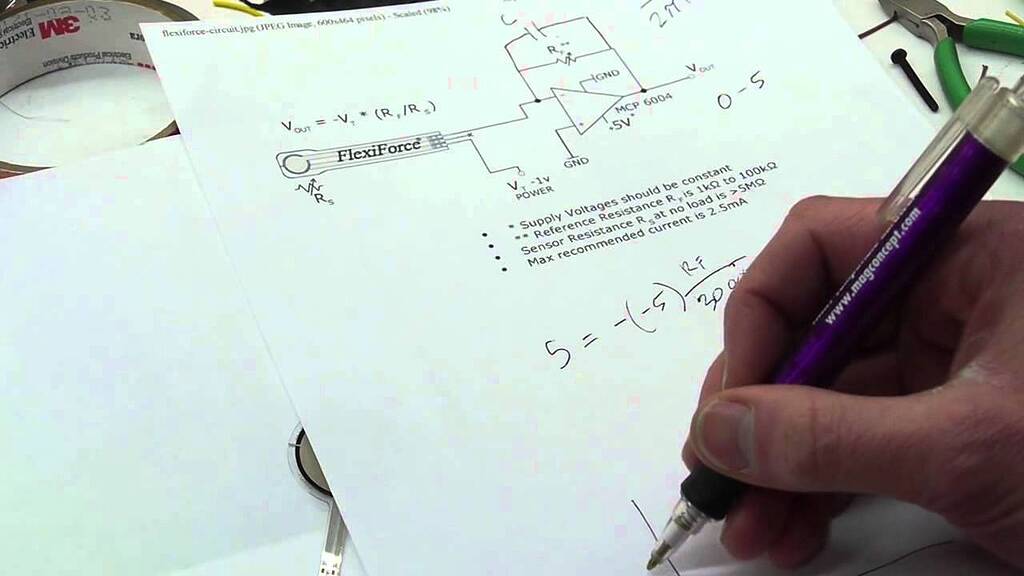 3M
flexiforce-circuit.jpg (JPEG Image, 600x464 pixels) - Scaled (98%)
C
R_F **
GND
V_OUT
MCP 6004
"5V"
GND
0 - 5
V_OUT = -V_T * (R_F/R_S)
FlexiForce
R_S
V_T -1v
POWER
• * Supply Voltages should be constant
• ** Reference Resistance R_F is 1KΩ to 100KΩ
• Sensor Resistance R_S at no load is >5MΩ
• Max recommended current is 2.5mA
5 = -(-5) RF
www.magconcept.com